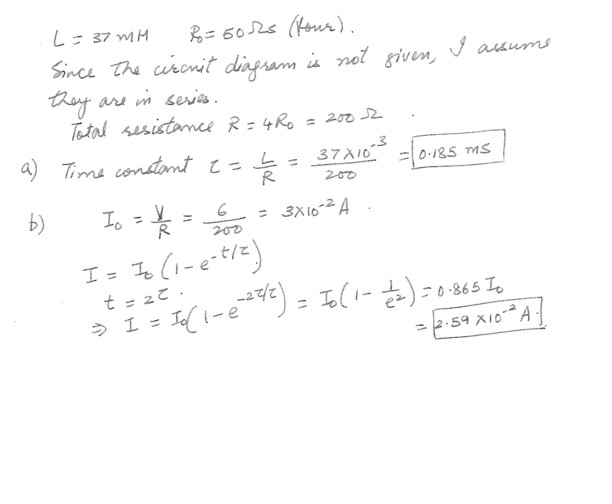 L = 37 mH R₀ = 50 Ωs (Four).
Since the circuit diagram is not given, I assume
they are in series.
Total resistance R = 4R₀ = 200 Ω.
a) Time constant τ = L/R = 37X10⁻³/200 = 0.185 ms
b) I₀ = V/R = 6/200 = 3X10⁻² A.
I = I₀ (1-e^-t/τ)
t = 2τ.
⇒ I = I₀(1-e^-2τ/τ) = I₀(1- 1/e²) = 0.865 I₀
= 2.59 X10⁻² A.